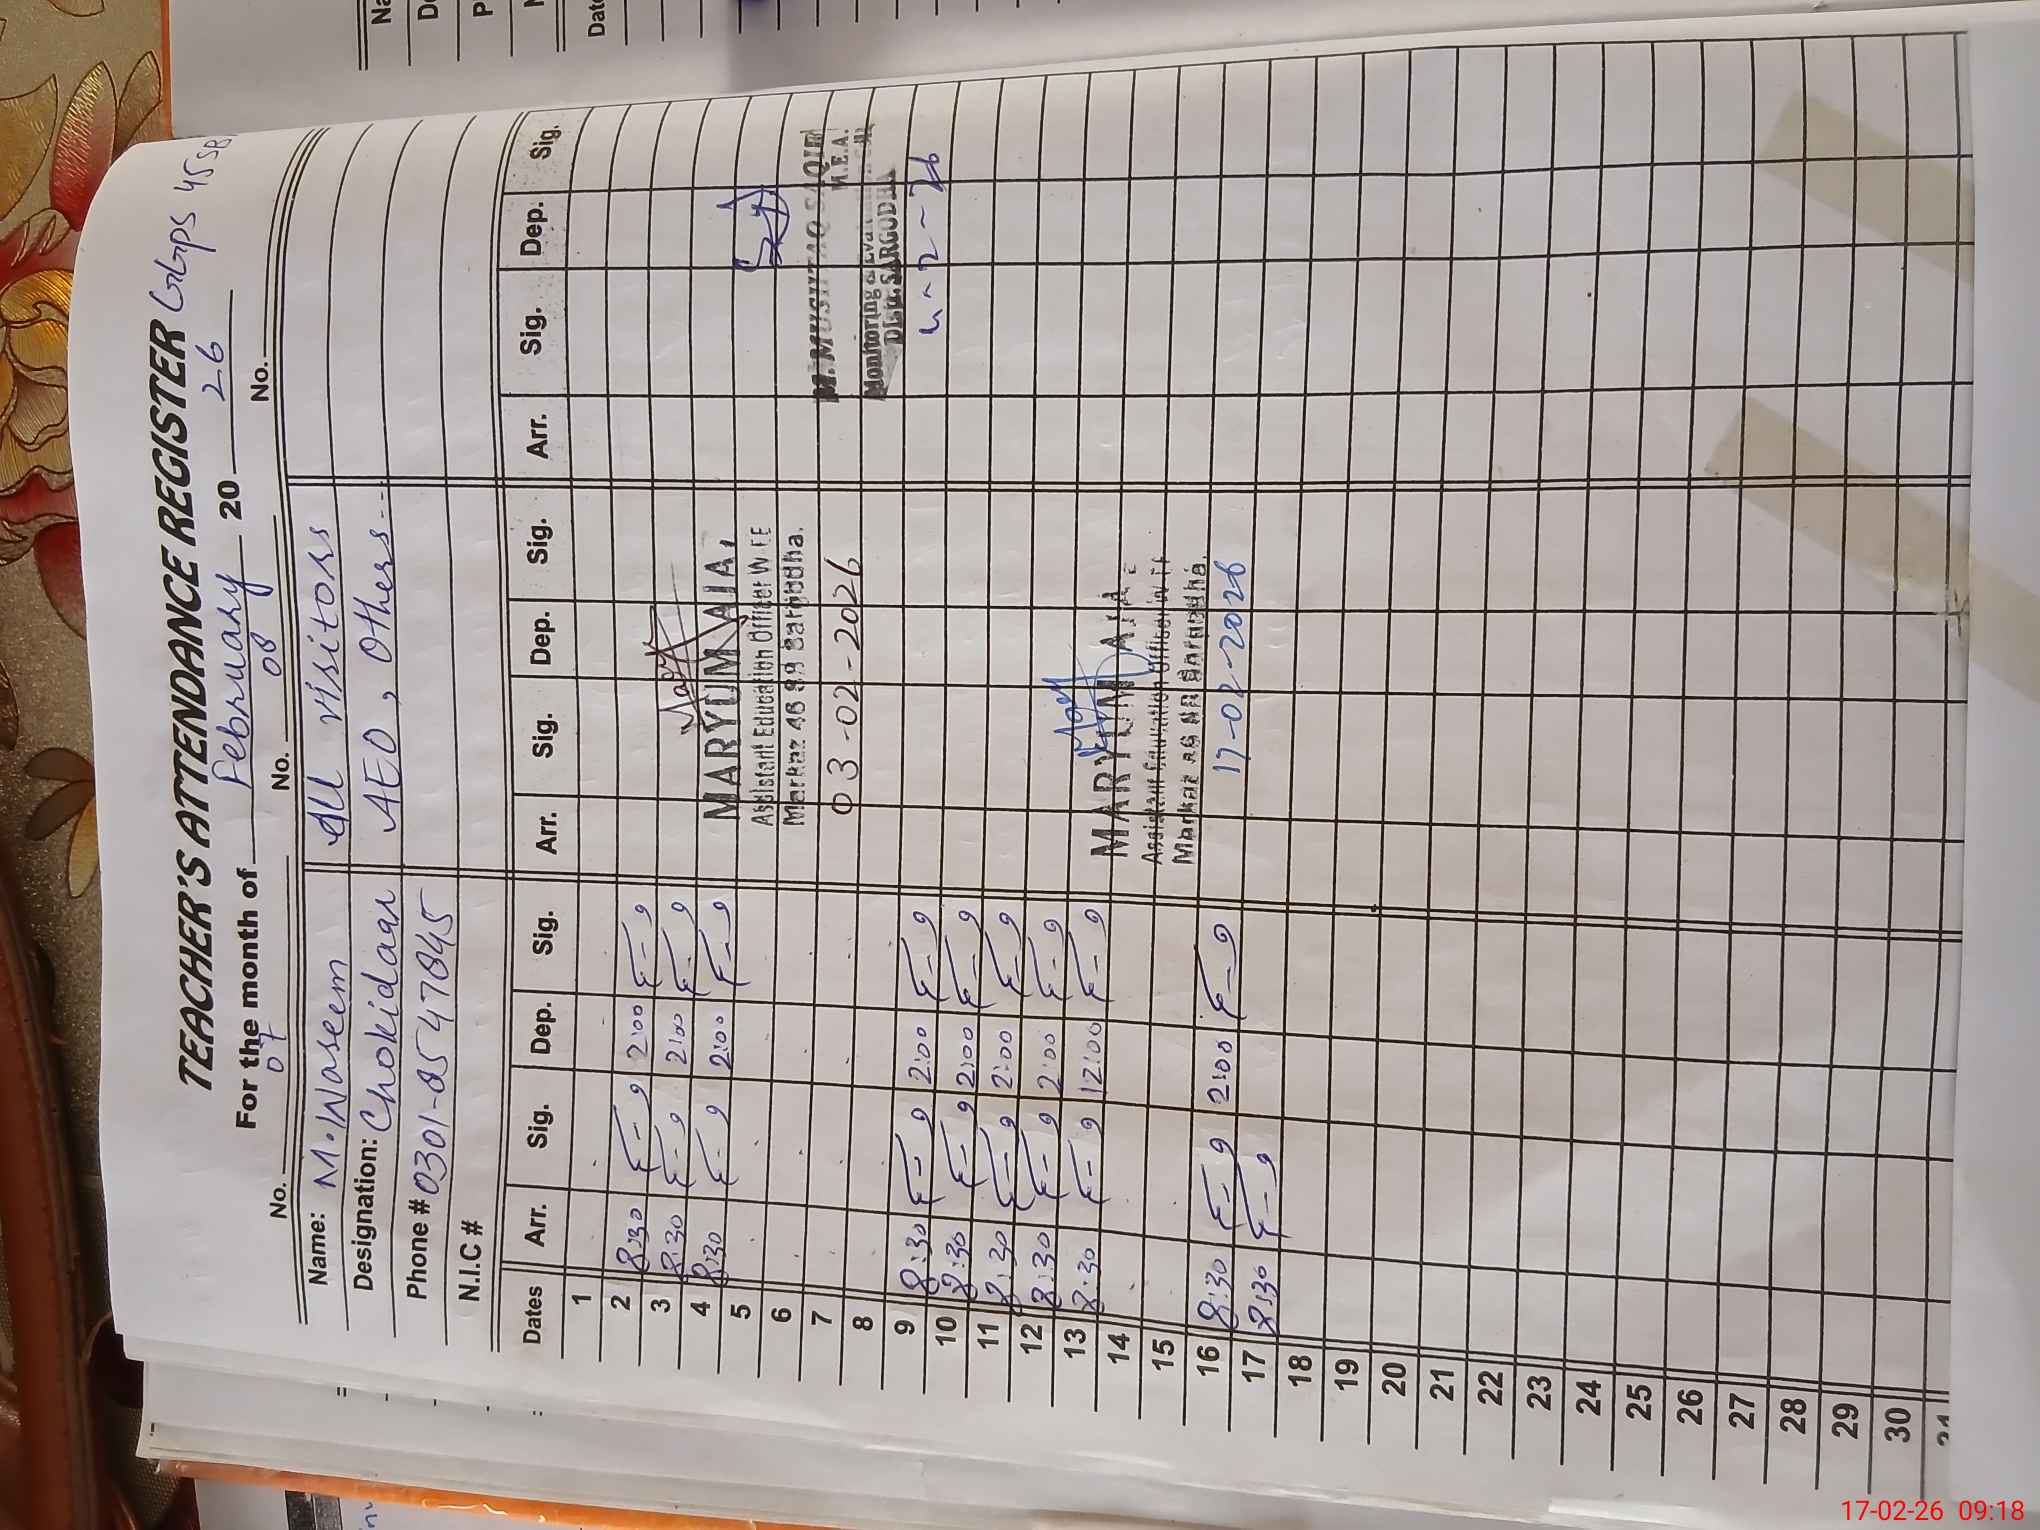 TEACHER'S ATTENDANCE REGISTER GGPS 45 SB
For the month of February 2026
No. 07 No. 08 No.
Name: M. Waseem All visitors
Designation: Chokidaar AEO, Others...
Phone # 0301-0547845
N.I.C #
Dates Arr. Sig. Dep. Sig. Arr. Sig. Dep. Sig. Arr. Sig. Dep. Sig.
1
2 8:30 2:00
3 8:30 2:00
4 8:30 2:00
5
6
7
8
9 8:30 2:00
10 8:30 2:00
11 8:30 2:00
12 8:30 2:00
13 8:30 12:00
14
15
16 8:30 2:00
17 8:30
18
19
20
21
22
23
24
25
26
27
28
29
30
31
MARYUM
Assistant Education Officer W-EE
Markaz 46 Sargodha.
03-02-2026
MARYUM
Assistant Education Officer
Markaz
17-02-2026
M. MUSHTAQ SAQIB
M.E.A.
Monitoring &
SARGODHA
2-26
Na
De
P
N
Date
17-02-26 09:18